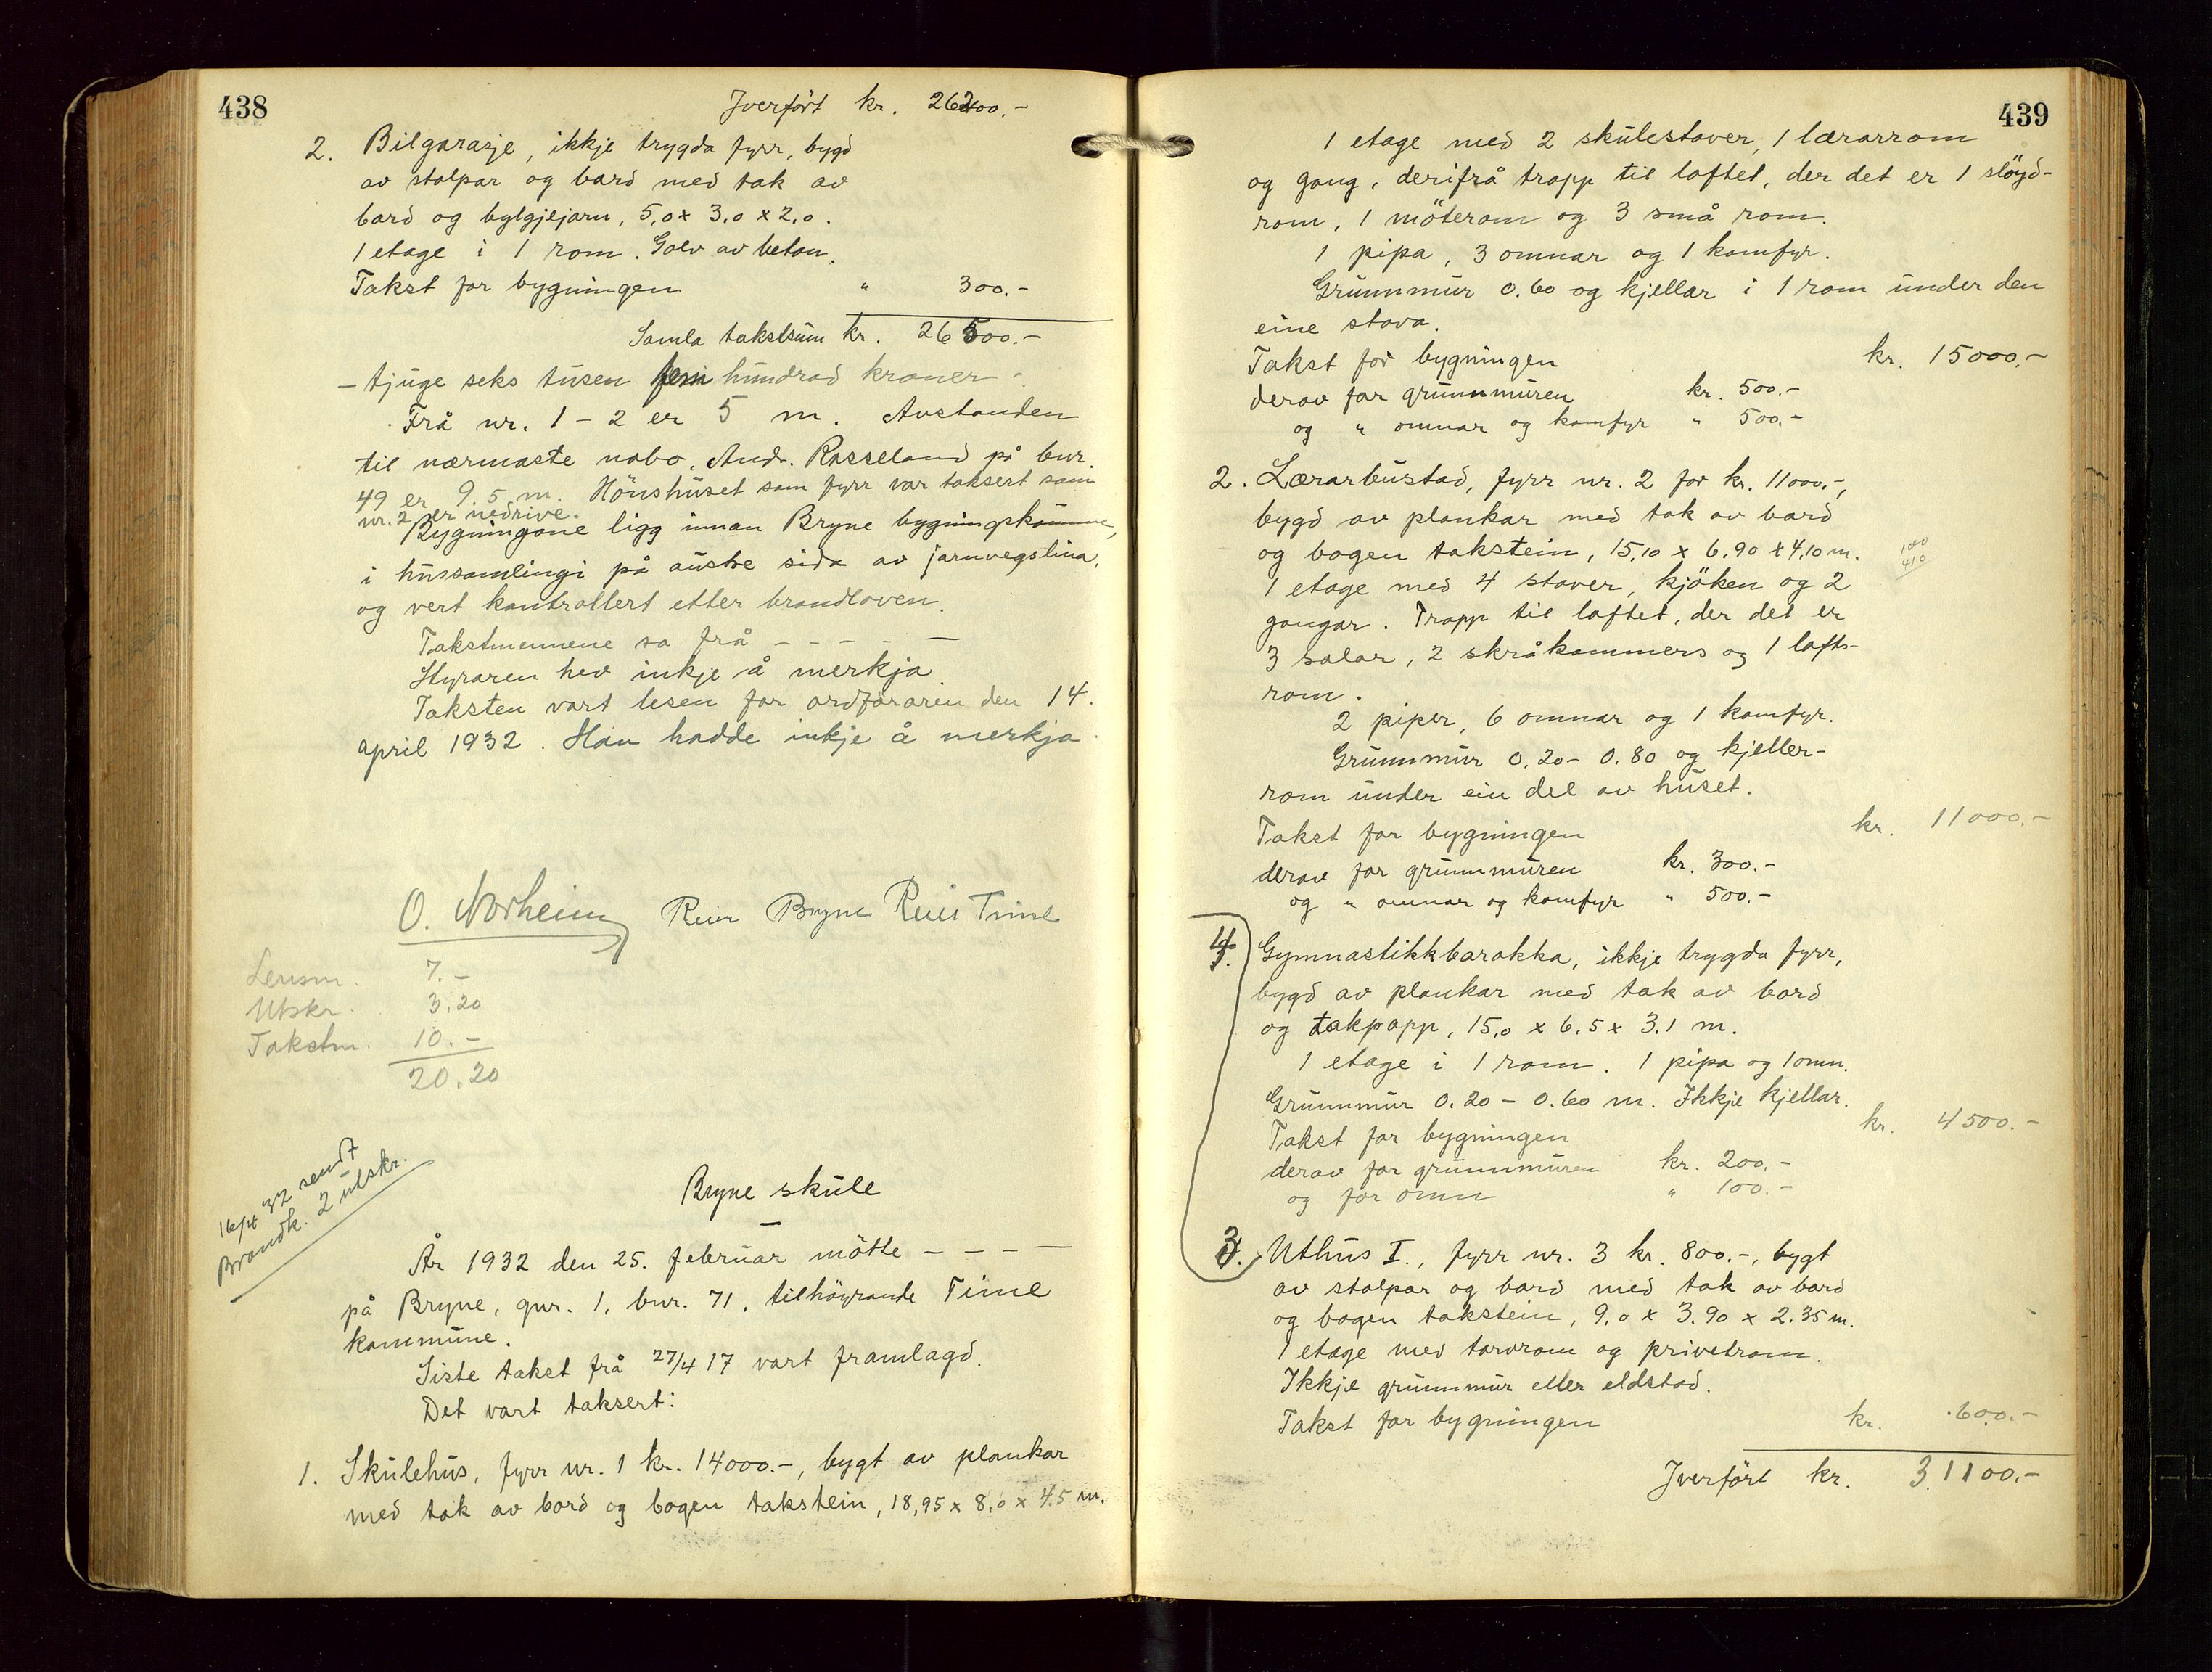 438
Jverfört kr. 26200.-
2. Bilgarasje, ikkje trygda fyrr, bygd
av stolpar og bord med tak av
bord og bylgjejarn, 5,0 x 3.0 x 2.0.
1 etage i 1 rom. Golv av beton.
Takst for bygningen " 300.-
Samla takstsum kr. 26500.-
- tjuge seks tusen fem hundrad kroner -
Frå nr. 1 - 2 er 5 m. Avstanden
til nærmaste nabo, Andr. Rosseland på bnr.
49 er 9.5 m. Hönshuset som fyrr var taksert som
nr. 2 er nedrive.
Bygningane ligg innan Bryne bygningskommune,
i hussamlingi på austre sida av jarnvegslina,
og vert kontrollert etter brandloven.
Takstmennene sa frå - - - - -
Styraren hev inkje å merkja.
Taksten vart lesen for ordföraren den 14.
april 1932. Han hadde inkje å merkja.
O. Norheim Reier Bryne Reier Time
Lensm. 7.-
Utskr. 3.20
Takstm. 10.-
20.20
16/4 32 sendt
Brandk. 2 utskr.
Bryne skule
År 1932 den 25. februar mötte - - - -
på Bryne, gnr. 1, bnr. 71, tilhöyrande Time
kommune.
Siste takst frå 27/4 17 vart framlagd.
Det vart taksert:
1. Skulehus, fyrr nr. 1 kr. 14000.-, bygt av plankar
med tak av bord og bogen takstein, 18,95 x 8,0 x 4.5 m.
439
1 etage med 2 skulestover, 1 lærarrom
og gang, derifrå trapp til loftet, der det er 1 slöyd-
rom, 1 möterom og 3 små rom.
1 pipa, 3 omnar og 1 komfyr.
Grunnmur 0.60 og kjellar i 1 rom under den
eine stova.
Takst for bygningen kr. 15000.-
derav for grunnmuren kr. 500.-
og " omnar og komfyr " 500.-
2. Lærarbustad, fyrr nr. 2 for kr. 11000.-,
bygd av plankar med tak av bord
og bogen takstein, 15,10 x 6.90 x 4,10 m.
100
410
1 etage med 4 stover, kjöken og 2
gangar. Trapp til loftet, der det er
3 salar, 2 skråkammers og 1 lofts-
rom.
2 piper, 6 omnar og 1 komfyr.
Grunnmur 0.20 - 0.80 og kjeller-
rom under ein del av huset.
Takst for bygningen kr. 11000.-
derav for grunnmuren kr. 300.-
og " omnar og komfyr " 500.-
4. Gymnastikkbarakka, ikkje trygda fyrr,
bygd av plankar med tak av bord
og takpapp, 15,0 x 6.5 x 3.1 m.
1 etage i 1 rom. 1 pipa og 1 omn.
Grunnmur 0.20 - 0.60 m. Ikkje kjellar.
Takst for bygningen kr. 4500.-
derav for grunnmuren kr. 200.-
og for omn " 100.-
3. Uthus I., fyrr nr. 3 kr. 800.-, bygt
av stolpar og bord med tak av bord
og bogen takstein, 9,0 x 3.90 x 2.35 m.
1 etage med torvrom og privetrom.
Ikkje grunnmur eller eldstad.
Takst for bygningen kr. 600.-
Jverfört kr. 31100.-